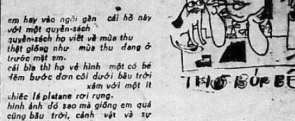 em hay vào ngồi gần cái hồ này
với một quyển-sách
quyển-sách họ viết về mùa thu
thật giống như mùa thu đang ở
trước mặt em.
cái bìa thì họ vẽ hình một cô bé
đêm bước đơn côi dưới bầu trời
xám với một ít
chiếc lá platane rơi rụng.
hình ảnh đó sao mà giống em quá
cũng bầu trời, cảnh vật và sự